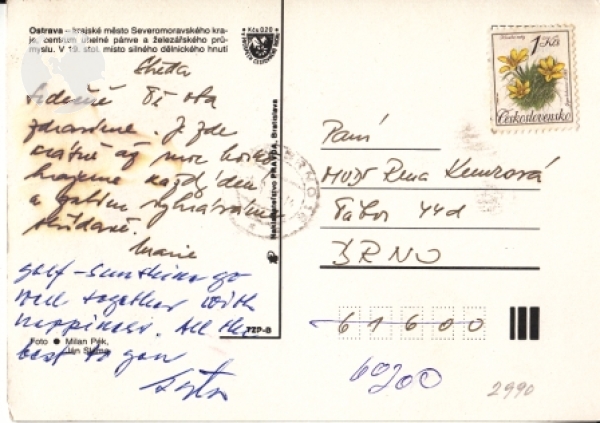 Ostrava – krajské město Severomoravského kra-
je, centrum uhelné pánve a železářského prů-
myslu. V 19. stol. místo silného dělnického hnutí
Kčs 0,20
Srdečně Ti oba
zdravíme. Je zde
krásně až moc horko
hrajeme každý den
a zatím vyhráváme
střídavě.
Marie
golf – sunshine go
well together with
happiness. All the
best to you
Foto • Milan Pék,
Ján
TZP-B
Nakladatelství PRAVDA, Bratislava
BRNO
1 Kčs
Československo
Paní
MUDr Rena
Tábor 44d
BRNO
6 1 6 0 0
60200
2990